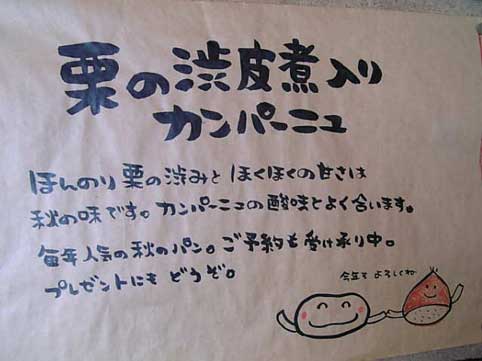 栗の渋皮煮入り
カンパーニュ
ほんのり栗の渋みと ほくほくの甘さは
秋の味です。カンパーニュの酸味とよく合います。
毎年人気の秋のパン。ご予約も受け承り中。
プレゼントにも どうぞ。
今年も よろしくね